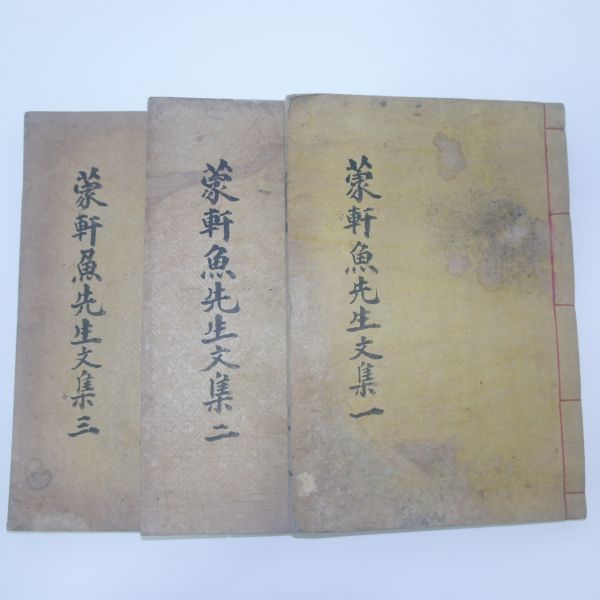 蒙軒魚先生文集一
蒙軒魚先生文集二
蒙軒魚先生文集三